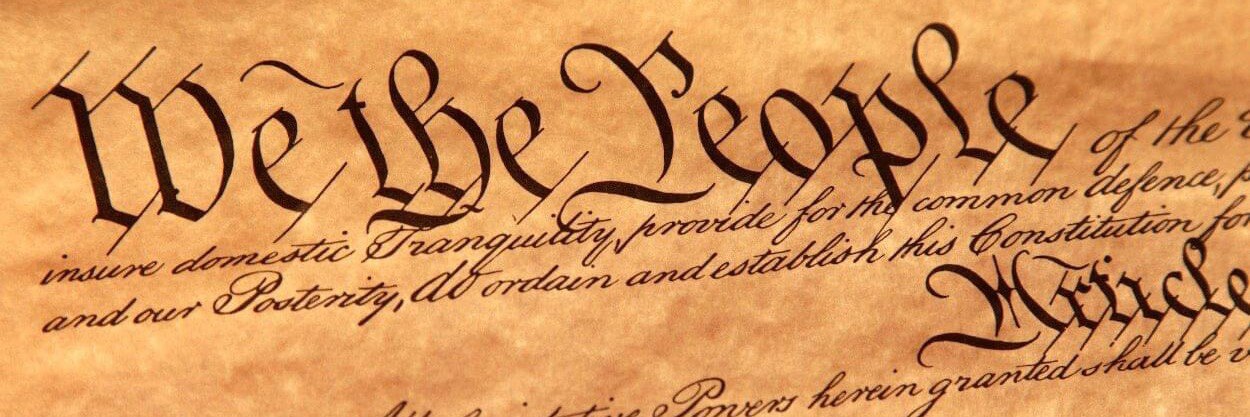 We the People of the
insure domestic Tranquility, provide for the common defence,
and our Posterity, do ordain and establish this Constitution for
Article
Powers herein granted shall be